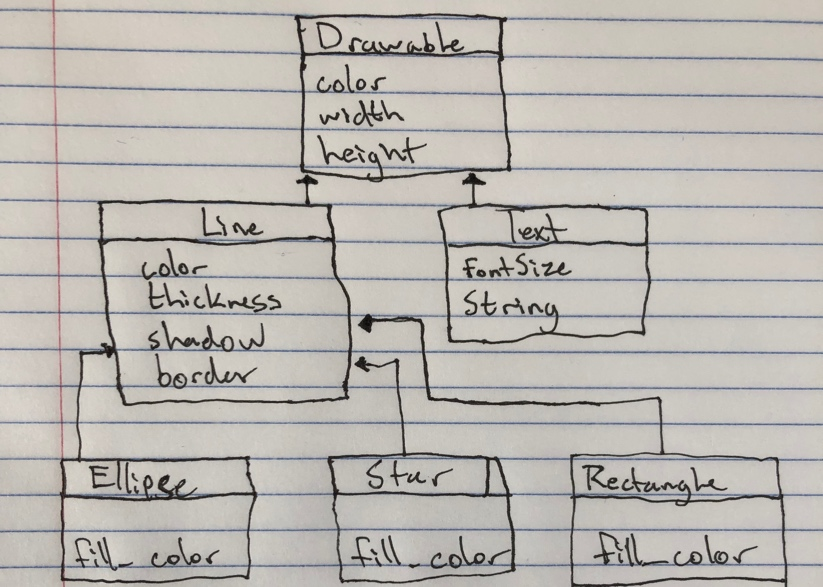 Drawable
color
width
height
Line
color
thickness
shadow
border
Text
fontSize
String
Ellipse
fill_color
Star
fill_color
Rectangle
fill_color